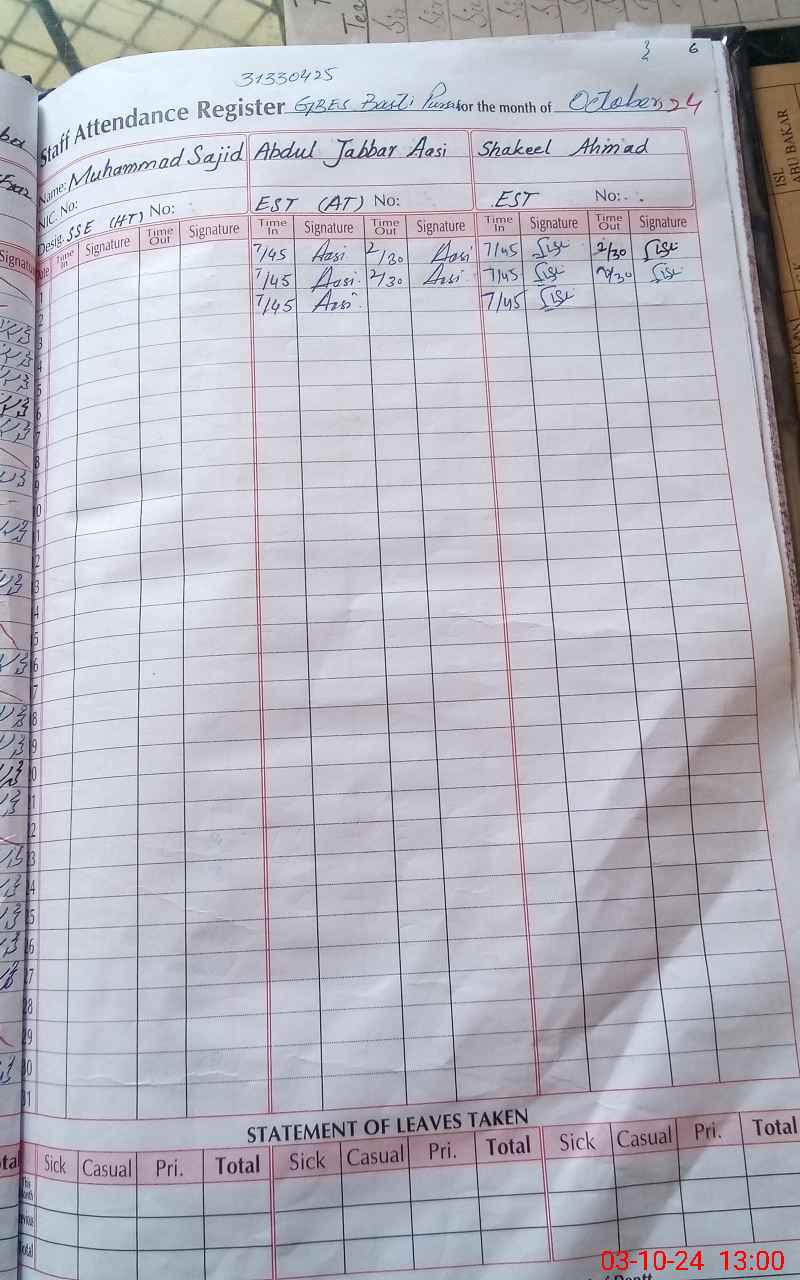 6
31330425
Staff Attendance Register GBES Basti for the month of October 24
Name: Muhammad Sajid Abdul Jabbar Aasi Shakeel Ahmad
NIC. No:
Desig. SSE (HT) No: EST (AT) No: EST No:
Date Time In Signature Time Out Signature Time In Signature Time Out Signature Time In Signature Time Out Signature
1 7/45 Aasi 2/30 Aasi 7/45 2/30
2 7/45 Aasi 2/30 Aasi 7/45 2/30
3 7/45 Aasi 7/45
4
5
6
7
8
9
10
11
12
13
14
15
16
17
18
19
20
21
22
23
24
25
26
27
28
29
30
31
STATEMENT OF LEAVES TAKEN
Sick Casual Pri. Total Sick Casual Pri. Total Sick Casual Pri. Total
This Month
Previous
Total
ISL
ABU BAKAR
03-10-24 13:00